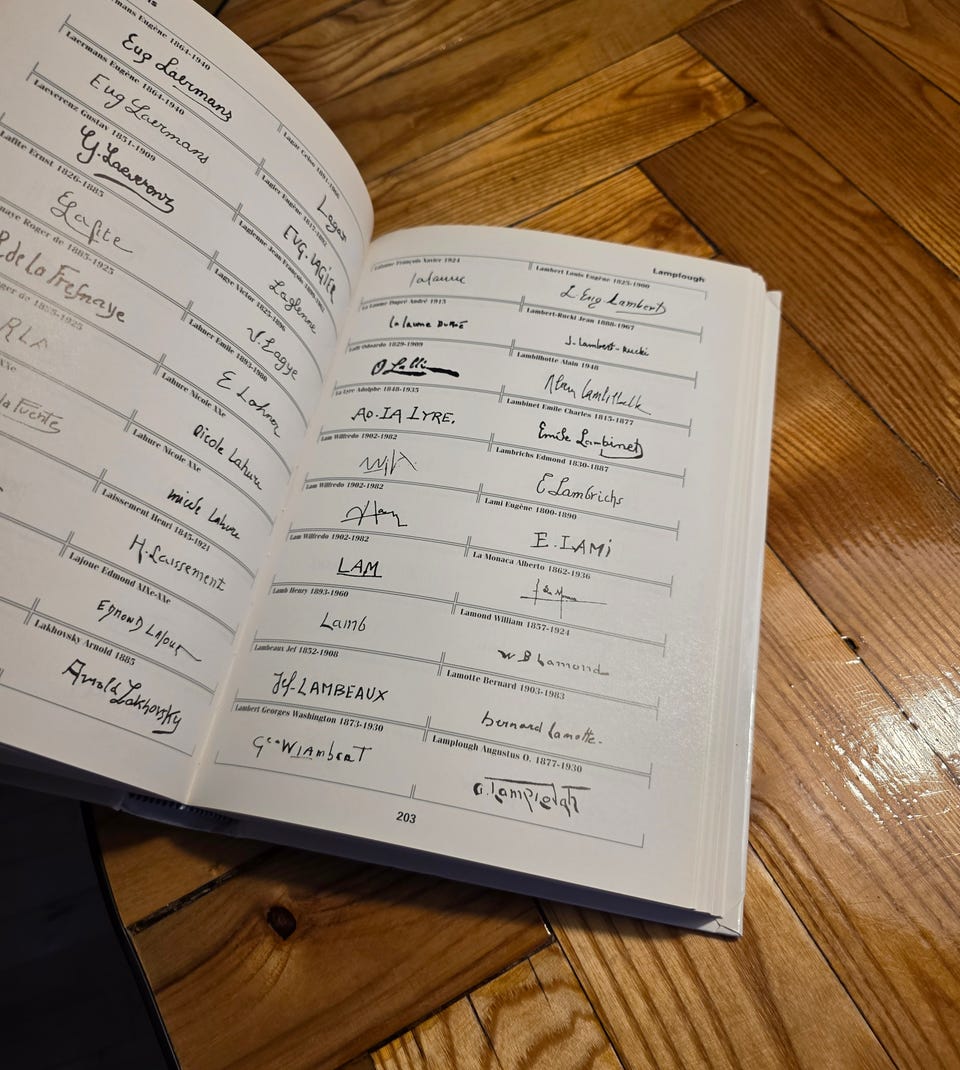 Laermans Eugène 1864-1940
Eug Laermans
Laermans Eugène 1864-1940
Eug Laermans
Laeverenz Gustav 1851-1909
G. Laeverenz
Lafite Ernst 1826-1885
E Lafite
Roger de 1885-1925
de la Fresnaye
Roger de 1885-1925
RLF
la Fuente
Lagar
Lagier Eugène
EUG. LAGIER
Laglenne Jean François
Laglenne
Lagye Victor 1825-1896
V. Lagye
Lahner Emile 1893-1980
E Lahner
Lahure Nicole XXe
Nicole Lahure
Lahure Nicole XXe
nicole Lahure
Laissement Henri 1845-1921
H. Laissement
Lajoue Edmond XIXe-XXe
EDMOND LAJOUE
Lakhovsky Arnold 1885
Arnold Lakhovsky
Lamplough
Lalanne François Xavier 1924
lalanne
La Laune Dupré André 1915
Lalli Odoardo 1829-1909
O Lalli
La Lyre Adolphe 1848-1935
AD. LA LYRE.
Lam Wilfredo 1902-1982
Lam Wilfredo 1902-1982
Lam Wilfredo 1902-1982
LAM
Lamb Henry 1893-1960
Lamb
Lambeaux Jef 1852-1908
Jef-LAMBEAUX
Lambert Georges Washington 1873-1930
Geo W LAmberT
Lambert Louis Eugène 1825-1900
L Eug Lambert
Lambert-Rucki Jean 1888-1967
J. Lambert-Rucki
Lambilhotte Alain 1948
Lambinet Emile Charles 1815-1877
Emile Lambinet
Lambrichs Edmond 1830-1887
E Lambrichs
Lami Eugène 1800-1890
E. LAMi
La Monaca Alberto 1862-1936
Lamond William 1857-1924
W B Lamond
Lamotte Bernard 1903-1983
bernard lamotte.
Lamplough Augustus O. 1877-1930
a. lamplough
203